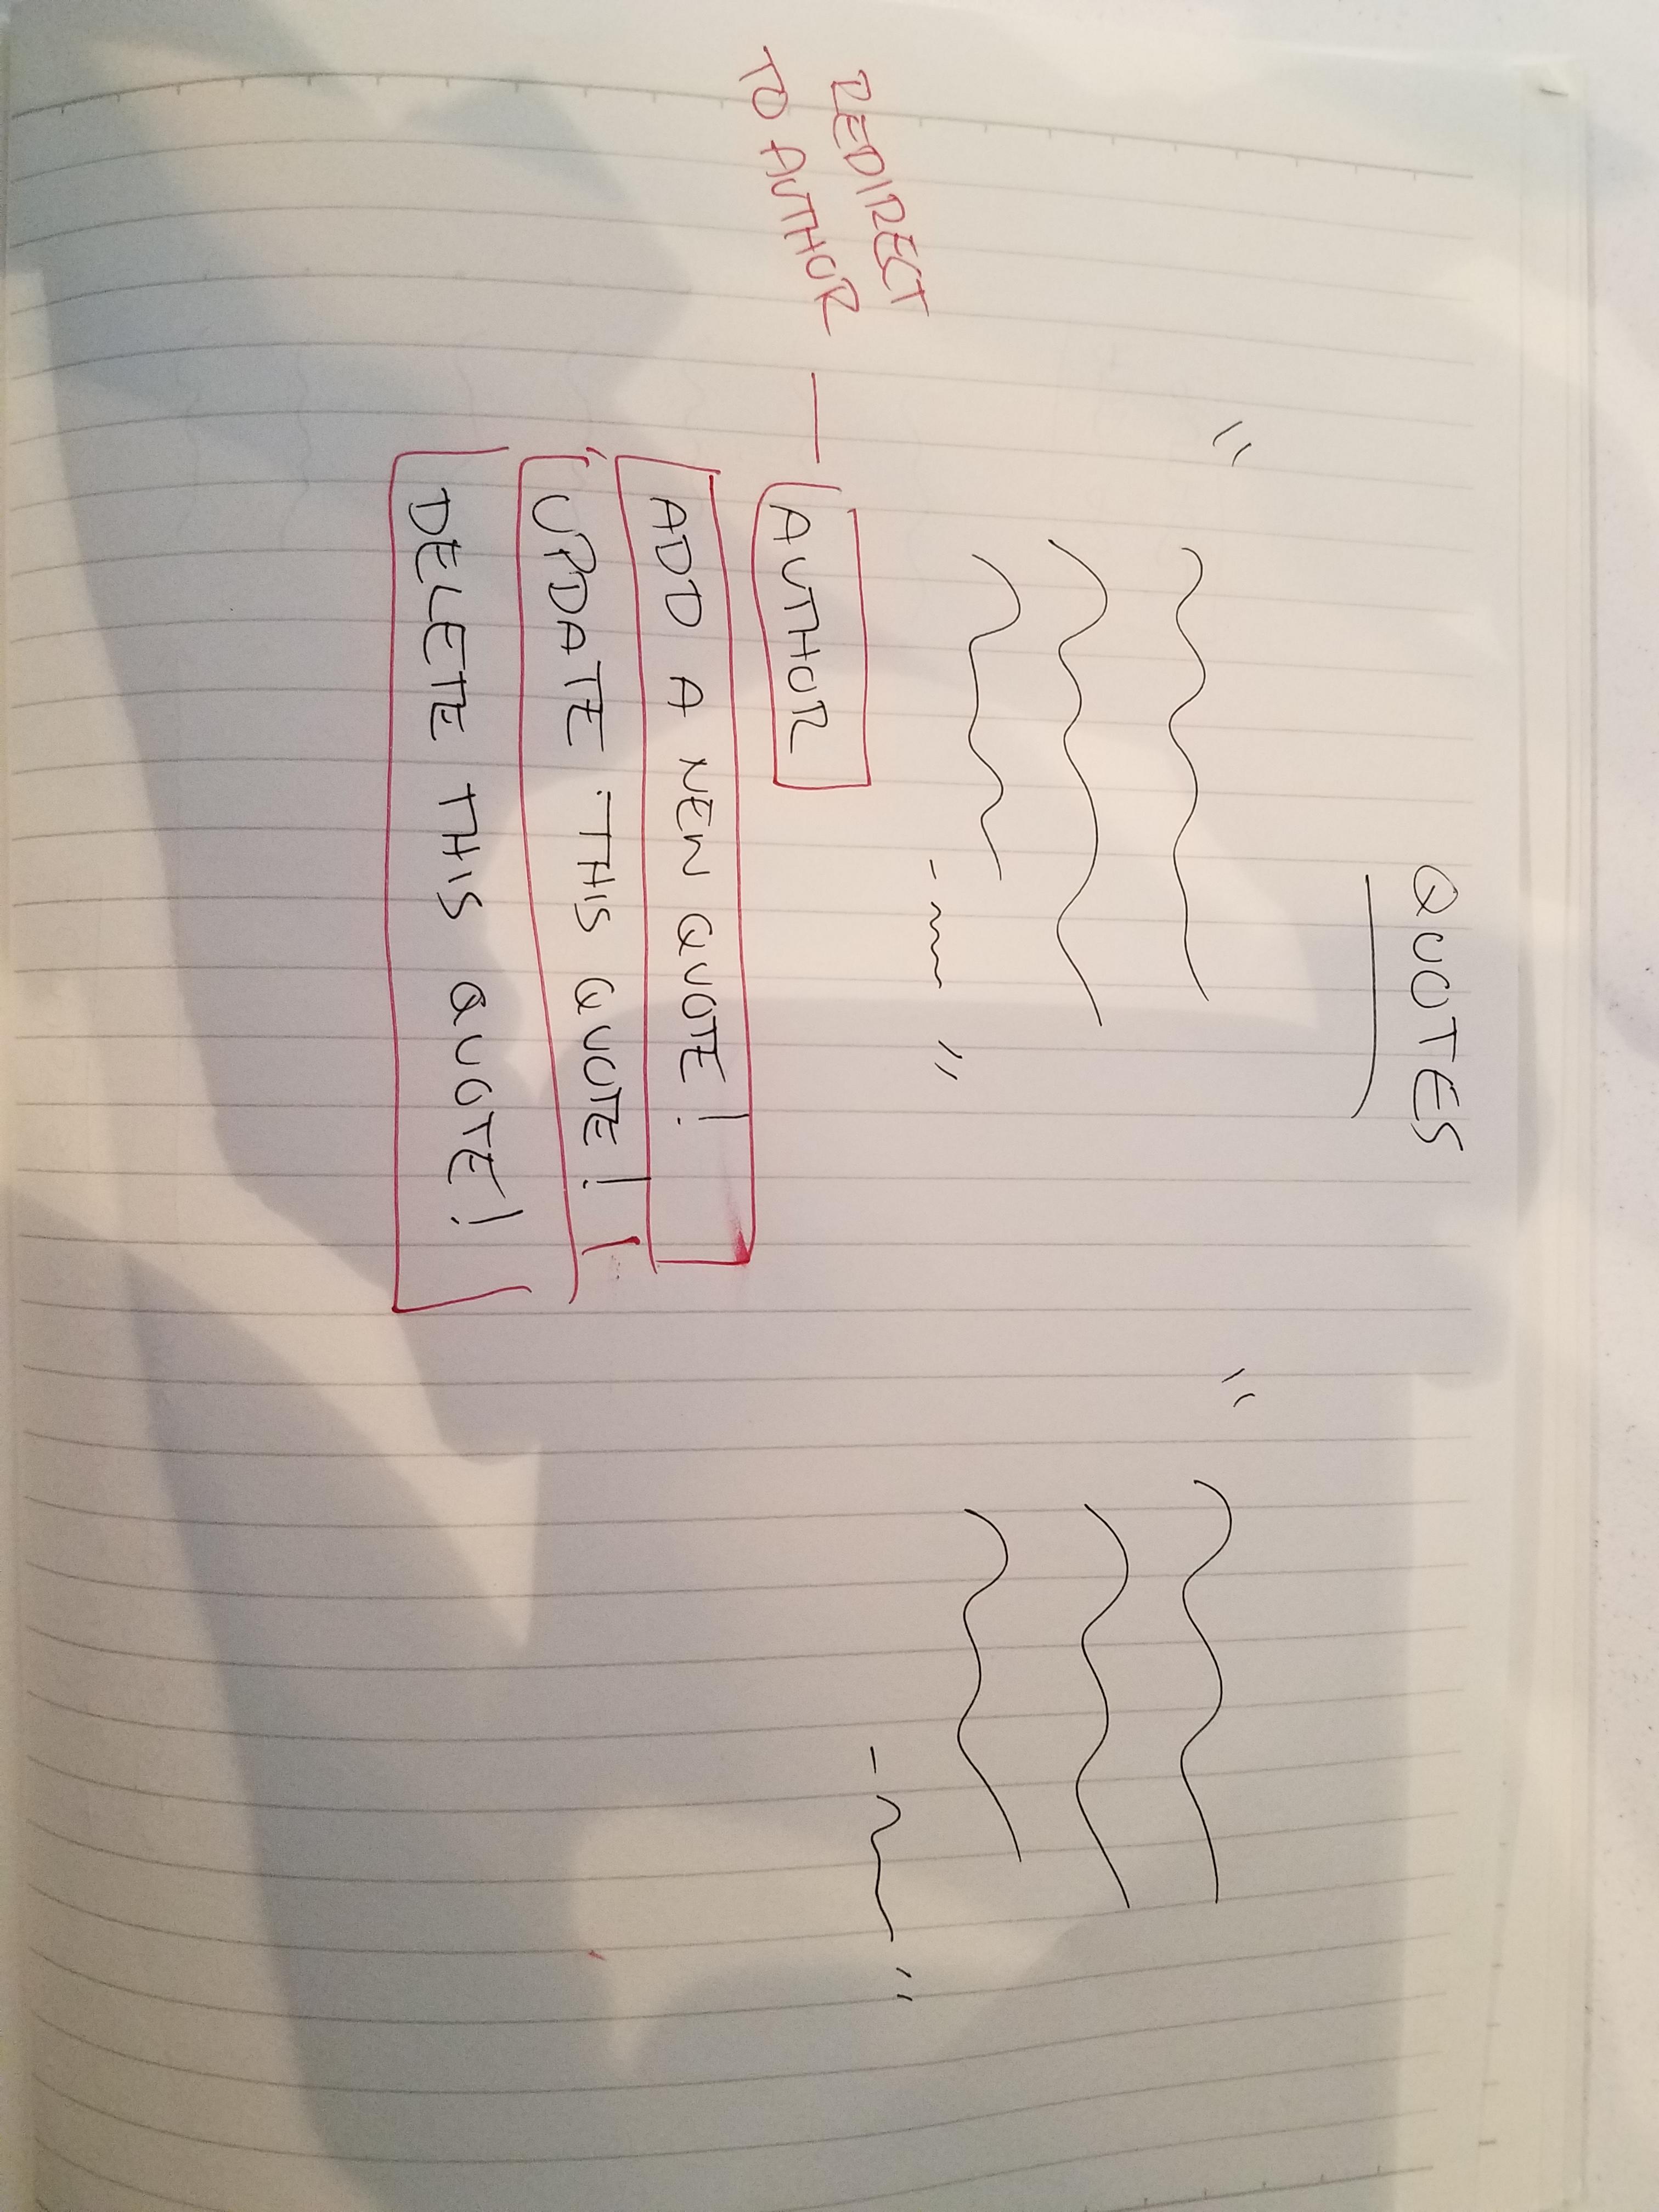 QUOTES
"
"
-
"
-
"
REDIRECT
TO AUTHOR —
AUTHOR
ADD A NEW QUOTE!
UPDATE THIS QUOTE!
DELETE THIS QUOTE!